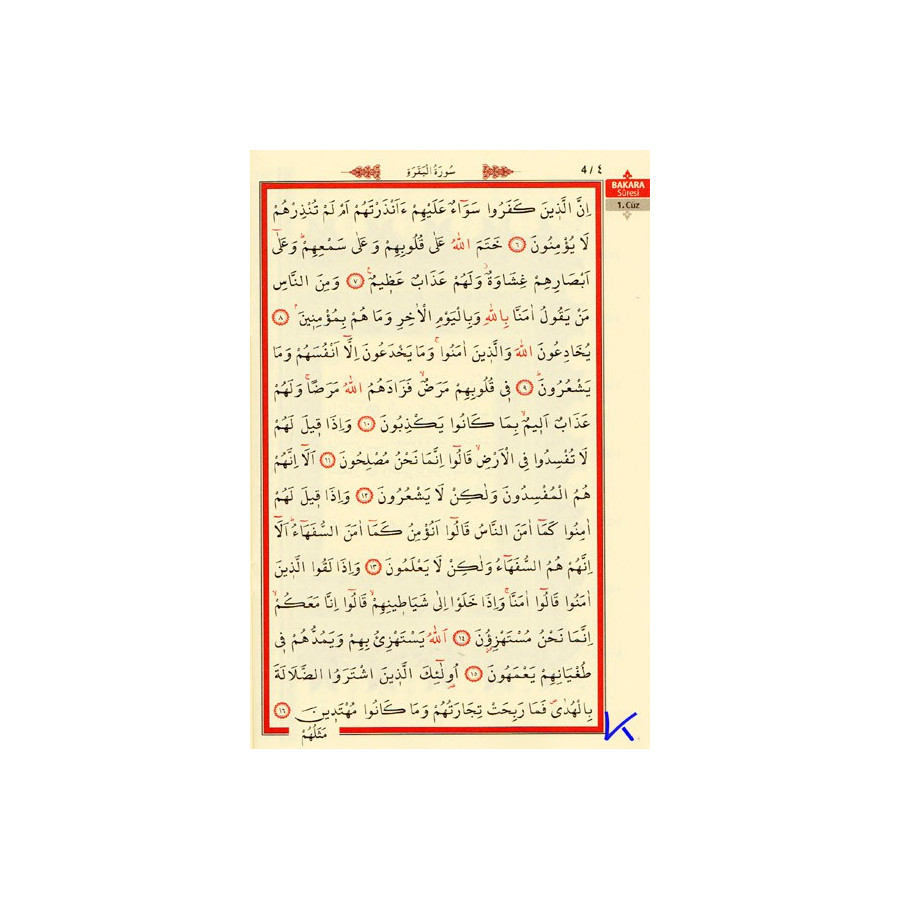 سُورَةُ الْبَقَرَةِ
4 / ٤
BAKARA
Sûresi
1. Cüz
اِنَّ الَّذ۪ينَ كَفَرُوا سَوَٓاءٌ عَلَيْهِمْ ءَاَنْذَرْتَهُمْ اَمْ لَمْ تُنْذِرْهُمْ
لَا يُؤْمِنُونَ ﴿٦﴾ خَتَمَ اللّٰهُ عَلٰى قُلُوبِهِمْ وَعَلٰى سَمْعِهِمْۜ وَعَلٰٓى
اَبْصَارِهِمْ غِشَاوَةٌۘ وَلَهُمْ عَذَابٌ عَظ۪يمٌ۟ ﴿٧﴾ وَمِنَ النَّاسِ
مَنْ يَقُولُ اٰمَنَّا بِاللّٰهِ وَبِالْيَوْمِ الْاٰخِرِ وَمَا هُمْ بِمُؤْمِن۪ينَۢ ﴿٨﴾
يُخَادِعُونَ اللّٰهَ وَالَّذ۪ينَ اٰمَنُواۚ وَمَا يَخْدَعُونَ اِلَّٓا اَنْفُسَهُمْ وَمَا
يَشْعُرُونَۜ ﴿٩﴾ ف۪ي قُلُوبِهِمْ مَرَضٌۙ فَزَادَهُمُ اللّٰهُ مَرَضًاۚ وَلَهُمْ
عَذَابٌ اَل۪يمٌۙ بِمَا كَانُوا يَكْذِبُونَ ﴿١٠﴾ وَاِذَا ق۪يلَ لَهُمْ
لَا تُفْسِدُوا فِي الْاَرْضِۙ قَالُٓوا اِنَّمَا نَحْنُ مُصْلِحُونَ ﴿١١﴾ اَلَٓا اِنَّهُمْ
هُمُ الْمُفْسِدُونَ وَلٰكِنْ لَا يَشْعُرُونَ ﴿١٢﴾ وَاِذَا ق۪يلَ لَهُمْ
اٰمِنُوا كَمَٓا اٰمَنَ النَّاسُ قَالُٓوا اَنُؤْمِنُ كَمَٓا اٰمَنَ السُّفَهَٓاءُۜ اَلَٓا
اِنَّهُمْ هُمُ السُّفَهَٓاءُ وَلٰكِنْ لَا يَعْلَمُونَ ﴿١٣﴾ وَاِذَا لَقُوا الَّذ۪ينَ
اٰمَنُوا قَالُٓوا اٰمَنَّاۚ وَاِذَا خَلَوْا اِلٰى شَيَاط۪ينِهِمْۙ قَالُٓوا اِنَّا مَعَكُمْۙ
اِنَّمَا نَحْنُ مُسْتَهْزِؤُ۫نَ ﴿١٤﴾ اَللّٰهُ يَسْتَهْزِئُ بِهِمْ وَيَمُدُّهُمْ ف۪ي
طُغْيَانِهِمْ يَعْمَهُونَ ﴿١٥﴾ اُو۬لٰٓئِكَ الَّذ۪ينَ اشْتَرَوُا الضَّلَالَةَ
بِالْهُدٰىۖ فَمَا رَبِحَتْ تِجَارَتُهُمْ وَمَا كَانُوا مُهْتَد۪ينَ ﴿١٦﴾
مَثَلُهُمْ